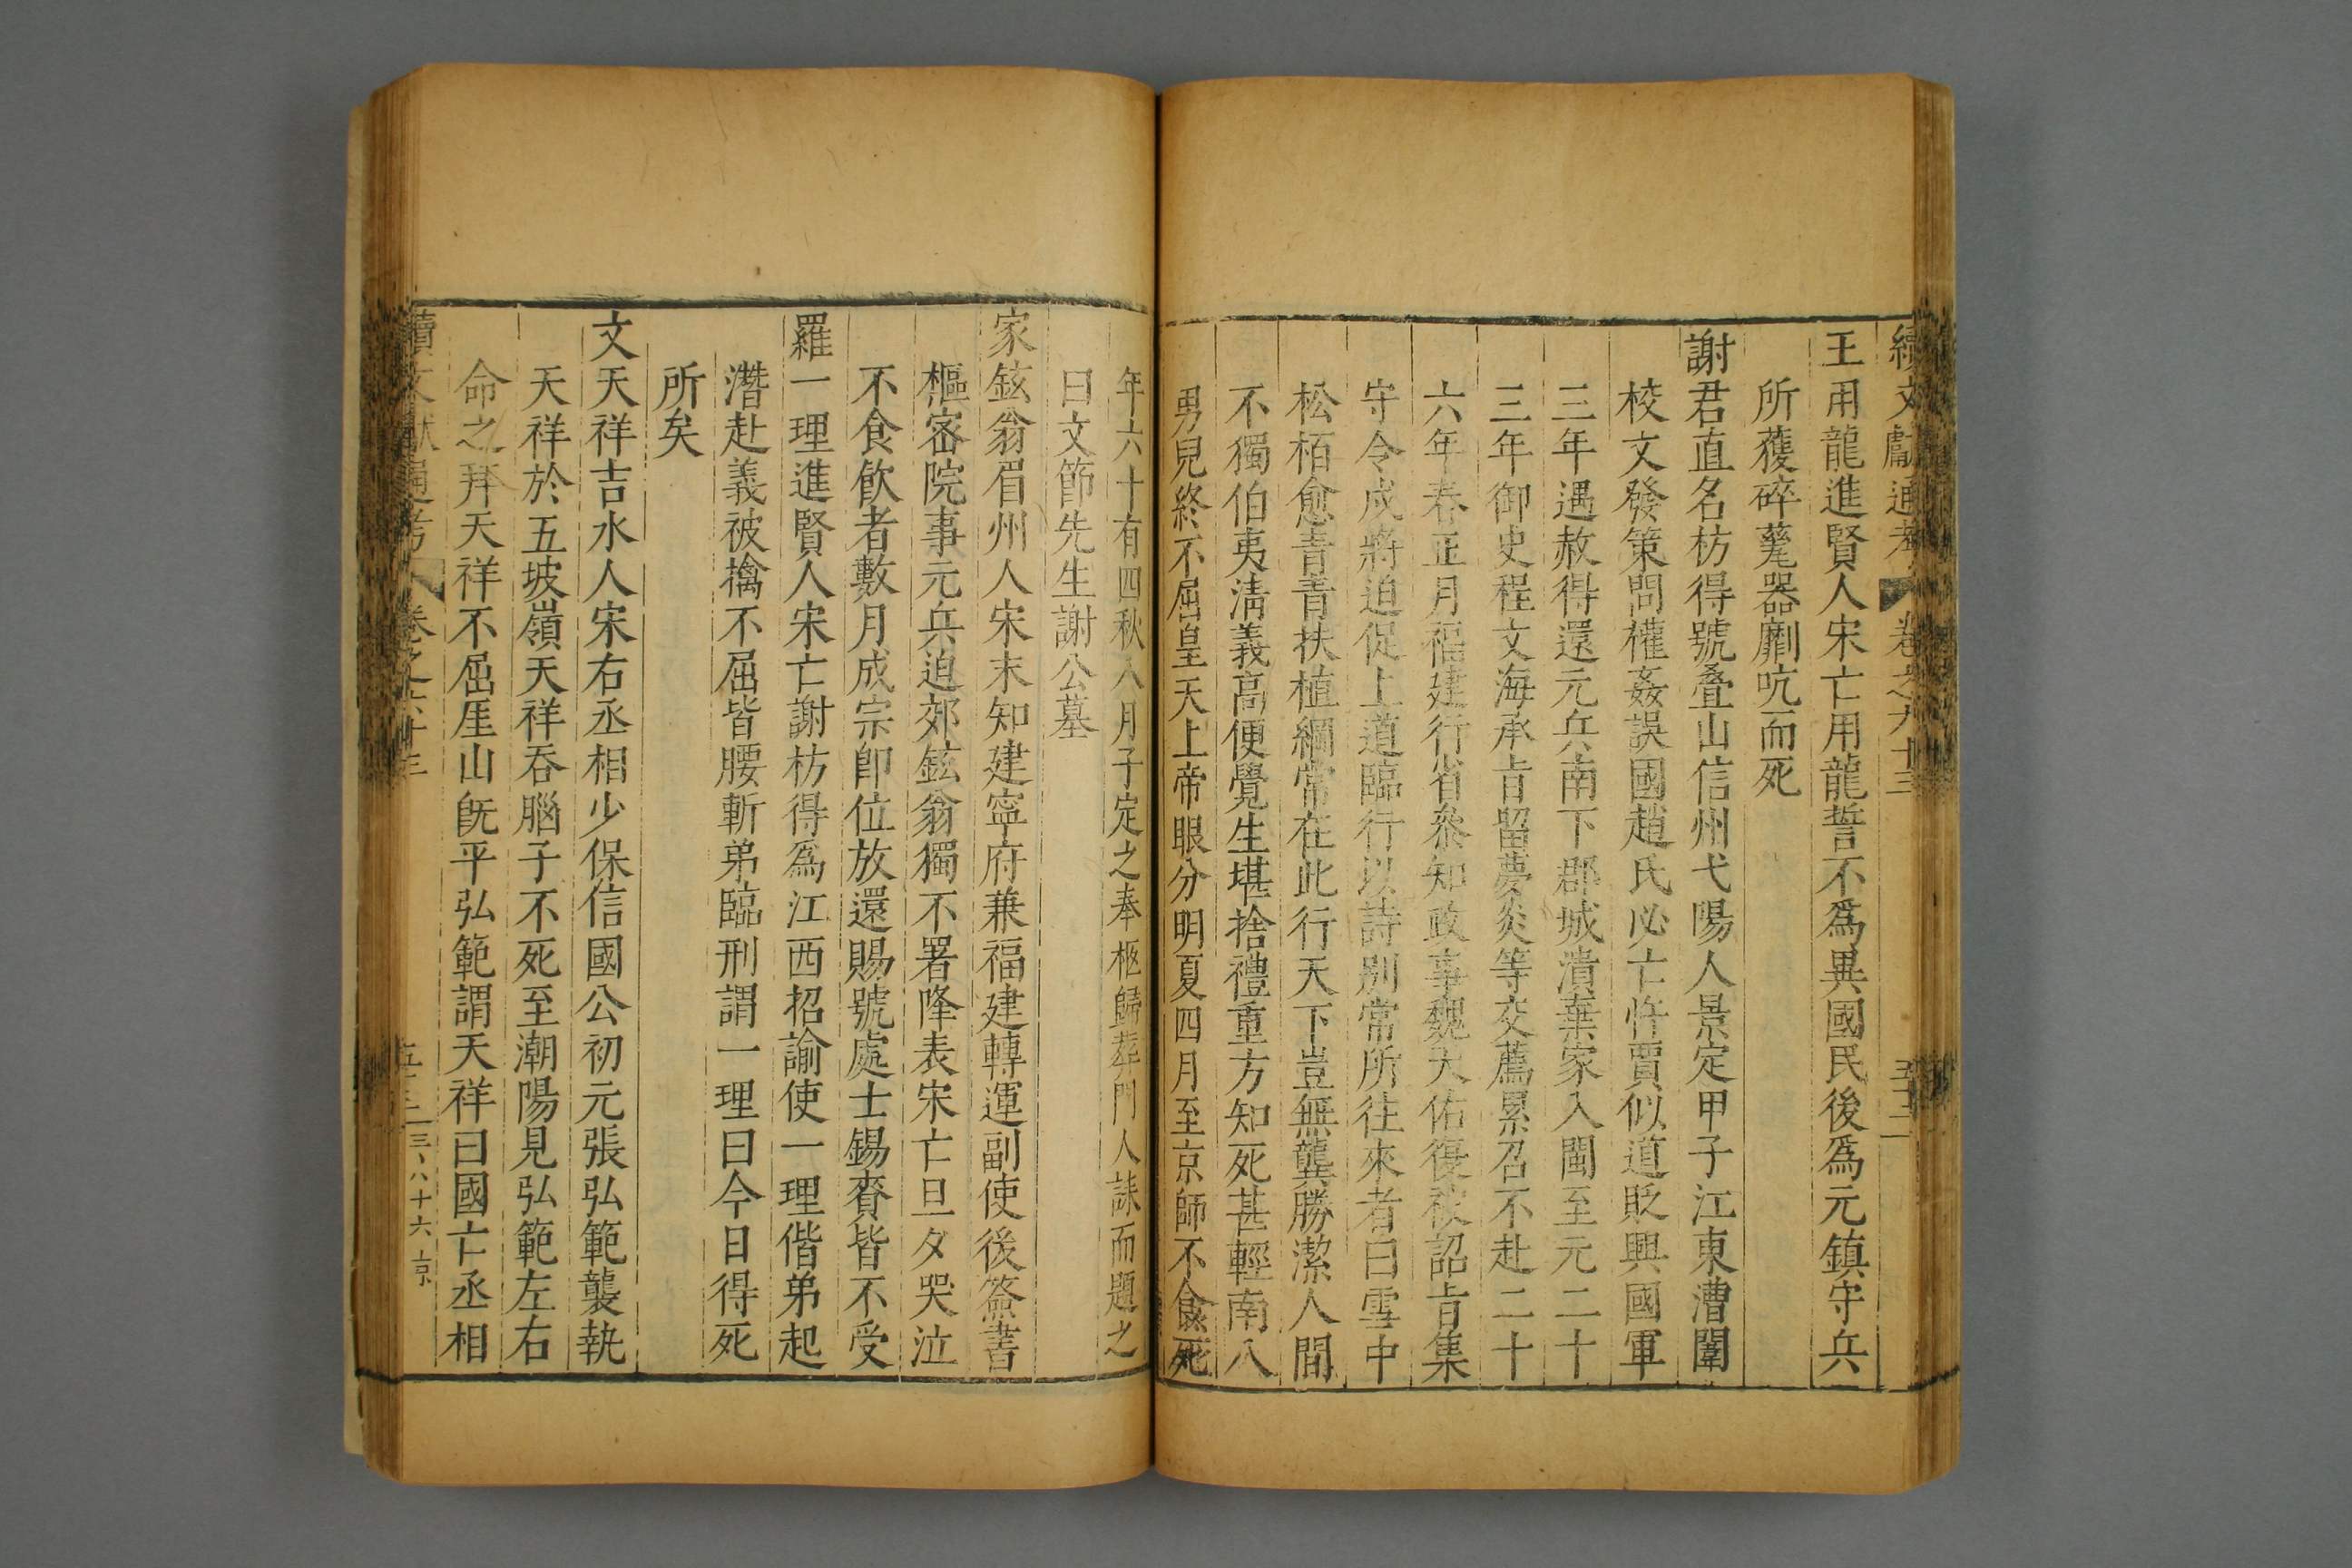 續文獻通考 卷之六十三 五十二
王用龍進賢人宋亡用龍誓不爲異國民後爲元鎮守兵
所獲碎毫器劘吭而死
謝君直名枋得號叠山信州弋陽人景定甲子江東漕闈
校文發策問權姦誤國趙氏必亡忤賈似道貶興國軍
三年遇赦得還元兵南下郡城潰棄家入閩至元二十
三年御史程文海承旨留夢炎等交薦累召不赴二十
六年春正月福建行省叅知政事魏天佑復被詔旨集
守令戍將迫促上道臨行以詩别常所往來者曰雪中
松栢愈青青扶植綱常在此行天下豈無龔勝潔人間
不獨伯夷清義高便覺生堪捨禮重方知死甚輕南八
男兒終不屈皇天上帝眼分明夏四月至京師不食死
年六十有四秋八月子定之奉柩歸葬門人誄而題之
曰文節先生謝公墓
家鉉翁眉州人宋末知建寧府兼福建轉運副使後簽書
樞密院事元兵迫郊鉉翁獨不署降表宋亡旦夕哭泣
不食飲者數月成宗卽位放還賜號處士錫賚皆不受
羅一理進賢人宋亡謝枋得爲江西招諭使一理偕弟起
潛赴義被擒不屈皆腰斬弟臨刑謂一理曰今日得死
所矣
文天祥吉水人宋右丞相少保信國公初元張弘範襲執
天祥於五坡嶺天祥吞腦子不死至潮陽見弘範左右
命之拜天祥不屈厓山旣平弘範謂天祥曰國亡丞相
續文獻通考 卷之六十三 五十二 三八十六 京